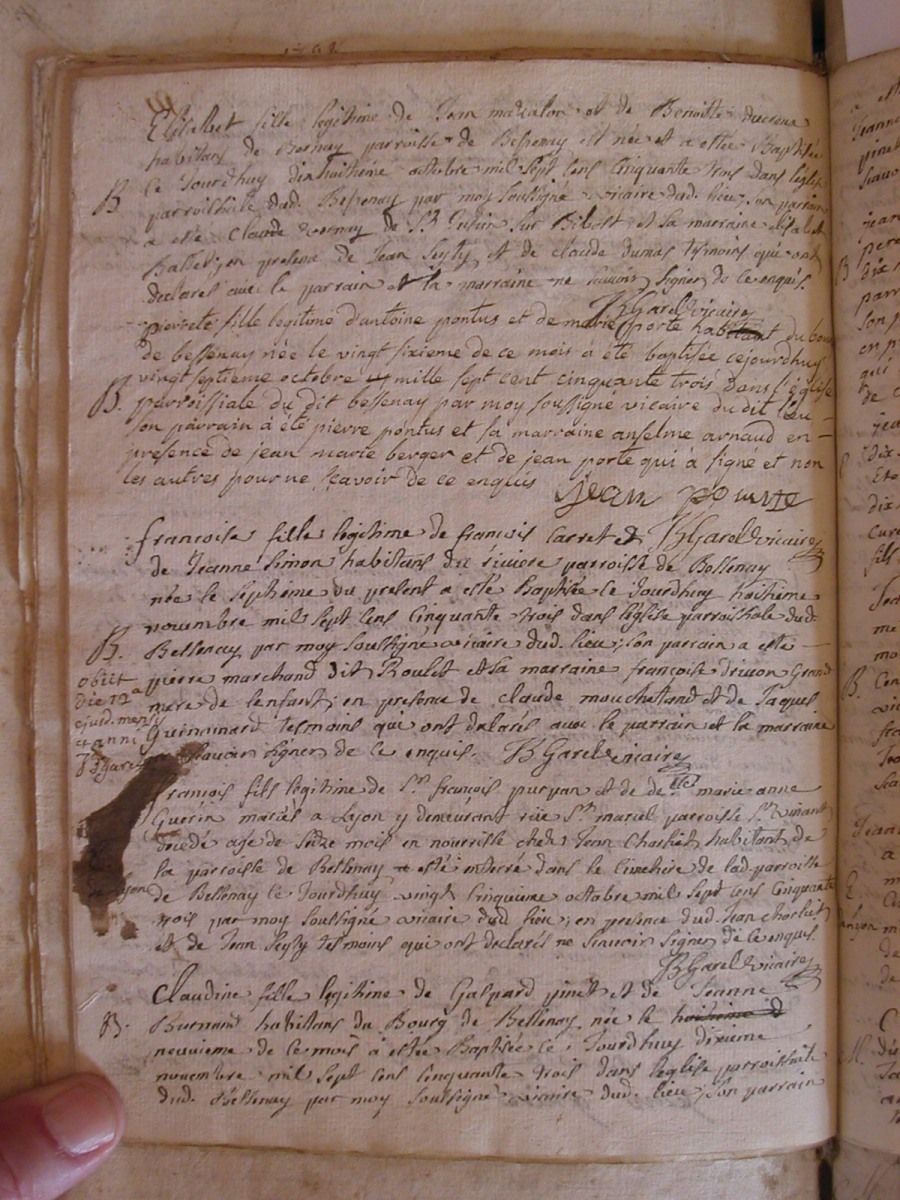 Elisabet fille legitime de Jean madalon et de Benoitte ducreux
habitans de Bernay parroisse de Bessenay est née et a estée Baptisée
ce Jourdhuy dixhuithiéme octobre mil sept cens cinquante trois dans leglise
B parroissiale dud. Bessenay par moy soussigné vicaire dud. lieu, son parrain
a este Claude vernay de St Julien sur Bibost et sa marraine elisabet
Ballet, en presence de Jean Seyty et de claude dumas tesmoins qui ont
declarés avec le parrain et la marraine ne scavoir signer de ce enquis.
B Garel vicaire
pierrete fille legitime d'antoine pontus et de marie porte habitant du bourg
de bessenay née le vingt sixieme de ce mois à été baptisée cejourdhuy
vingt septieme octobre mille sept cent cinquante trois dans l'église
B. parroissiale du dit bessenay par moy soussigné vicaire du dit lieu
son parrain à été pierre pontus et sa marraine anselme arnaud en
presence de jean marie berger et de jean porte qui à signé et non
les autres pour ne scavoir de ce enquis jean pourte
B Garel vicaire
francoise fille legitime de francois Carret et
de Jeanne Simon habitans du riviere parroisse de Bessenay
née le septhieme du present a estée Baptisée ce Jourdhuy huithieme
novembre mil sept cens cinquante trois dans leglise parroissiale dud.
B. Bessenay par moy soussigné vicaire dud. lieu, son parrain a este
obiit pierre marchand dit Roulet et sa marraine francoise drivon Grand
die 12a mere de lenfant, en presence de claude mouchatand et de Jaques
ejusd. mensis Guinamard tesmoins qui ont declarés avec le parrain et la marraine
et anni
B Garel scavoir signer de ce enquis. B Garel vicaire
francois fils legitime de Sr. francois purpan et de de.lle marie anne
Guerin mariés a Lyon y demeurant rüe St. marcel parroisse St. vincent
decedé age de seize mois en nourrisse chez Jean Charliet habitant de
la parroisse de Bessenay a esté enterré dans le cimetiere de lad. parroisse
de Lyon de Bessenay ce Jourdhuy vingt cinquieme octobre mil sept cens cinquante
trois par moy soussigné vicaire dud. lieu, en presence dud. Jean charliet
et de Jean Seyty tesmoins qui ont declarés ne scavoir signer de ce enquis.
B Garel vicaire
Claudine fille legitime de Gaspard pinet et de Jeanne
B. Burnand habitans du Bourg de Bessenay née le huitieme d
neuvieme de ce mois à estée Baptisée ce Jourdhuy dixieme
novembre mil sept cens cinquante trois dans leglise parroissiale
dud. Bessenay par moy soussigné vicaire dud. lieu, son parrain